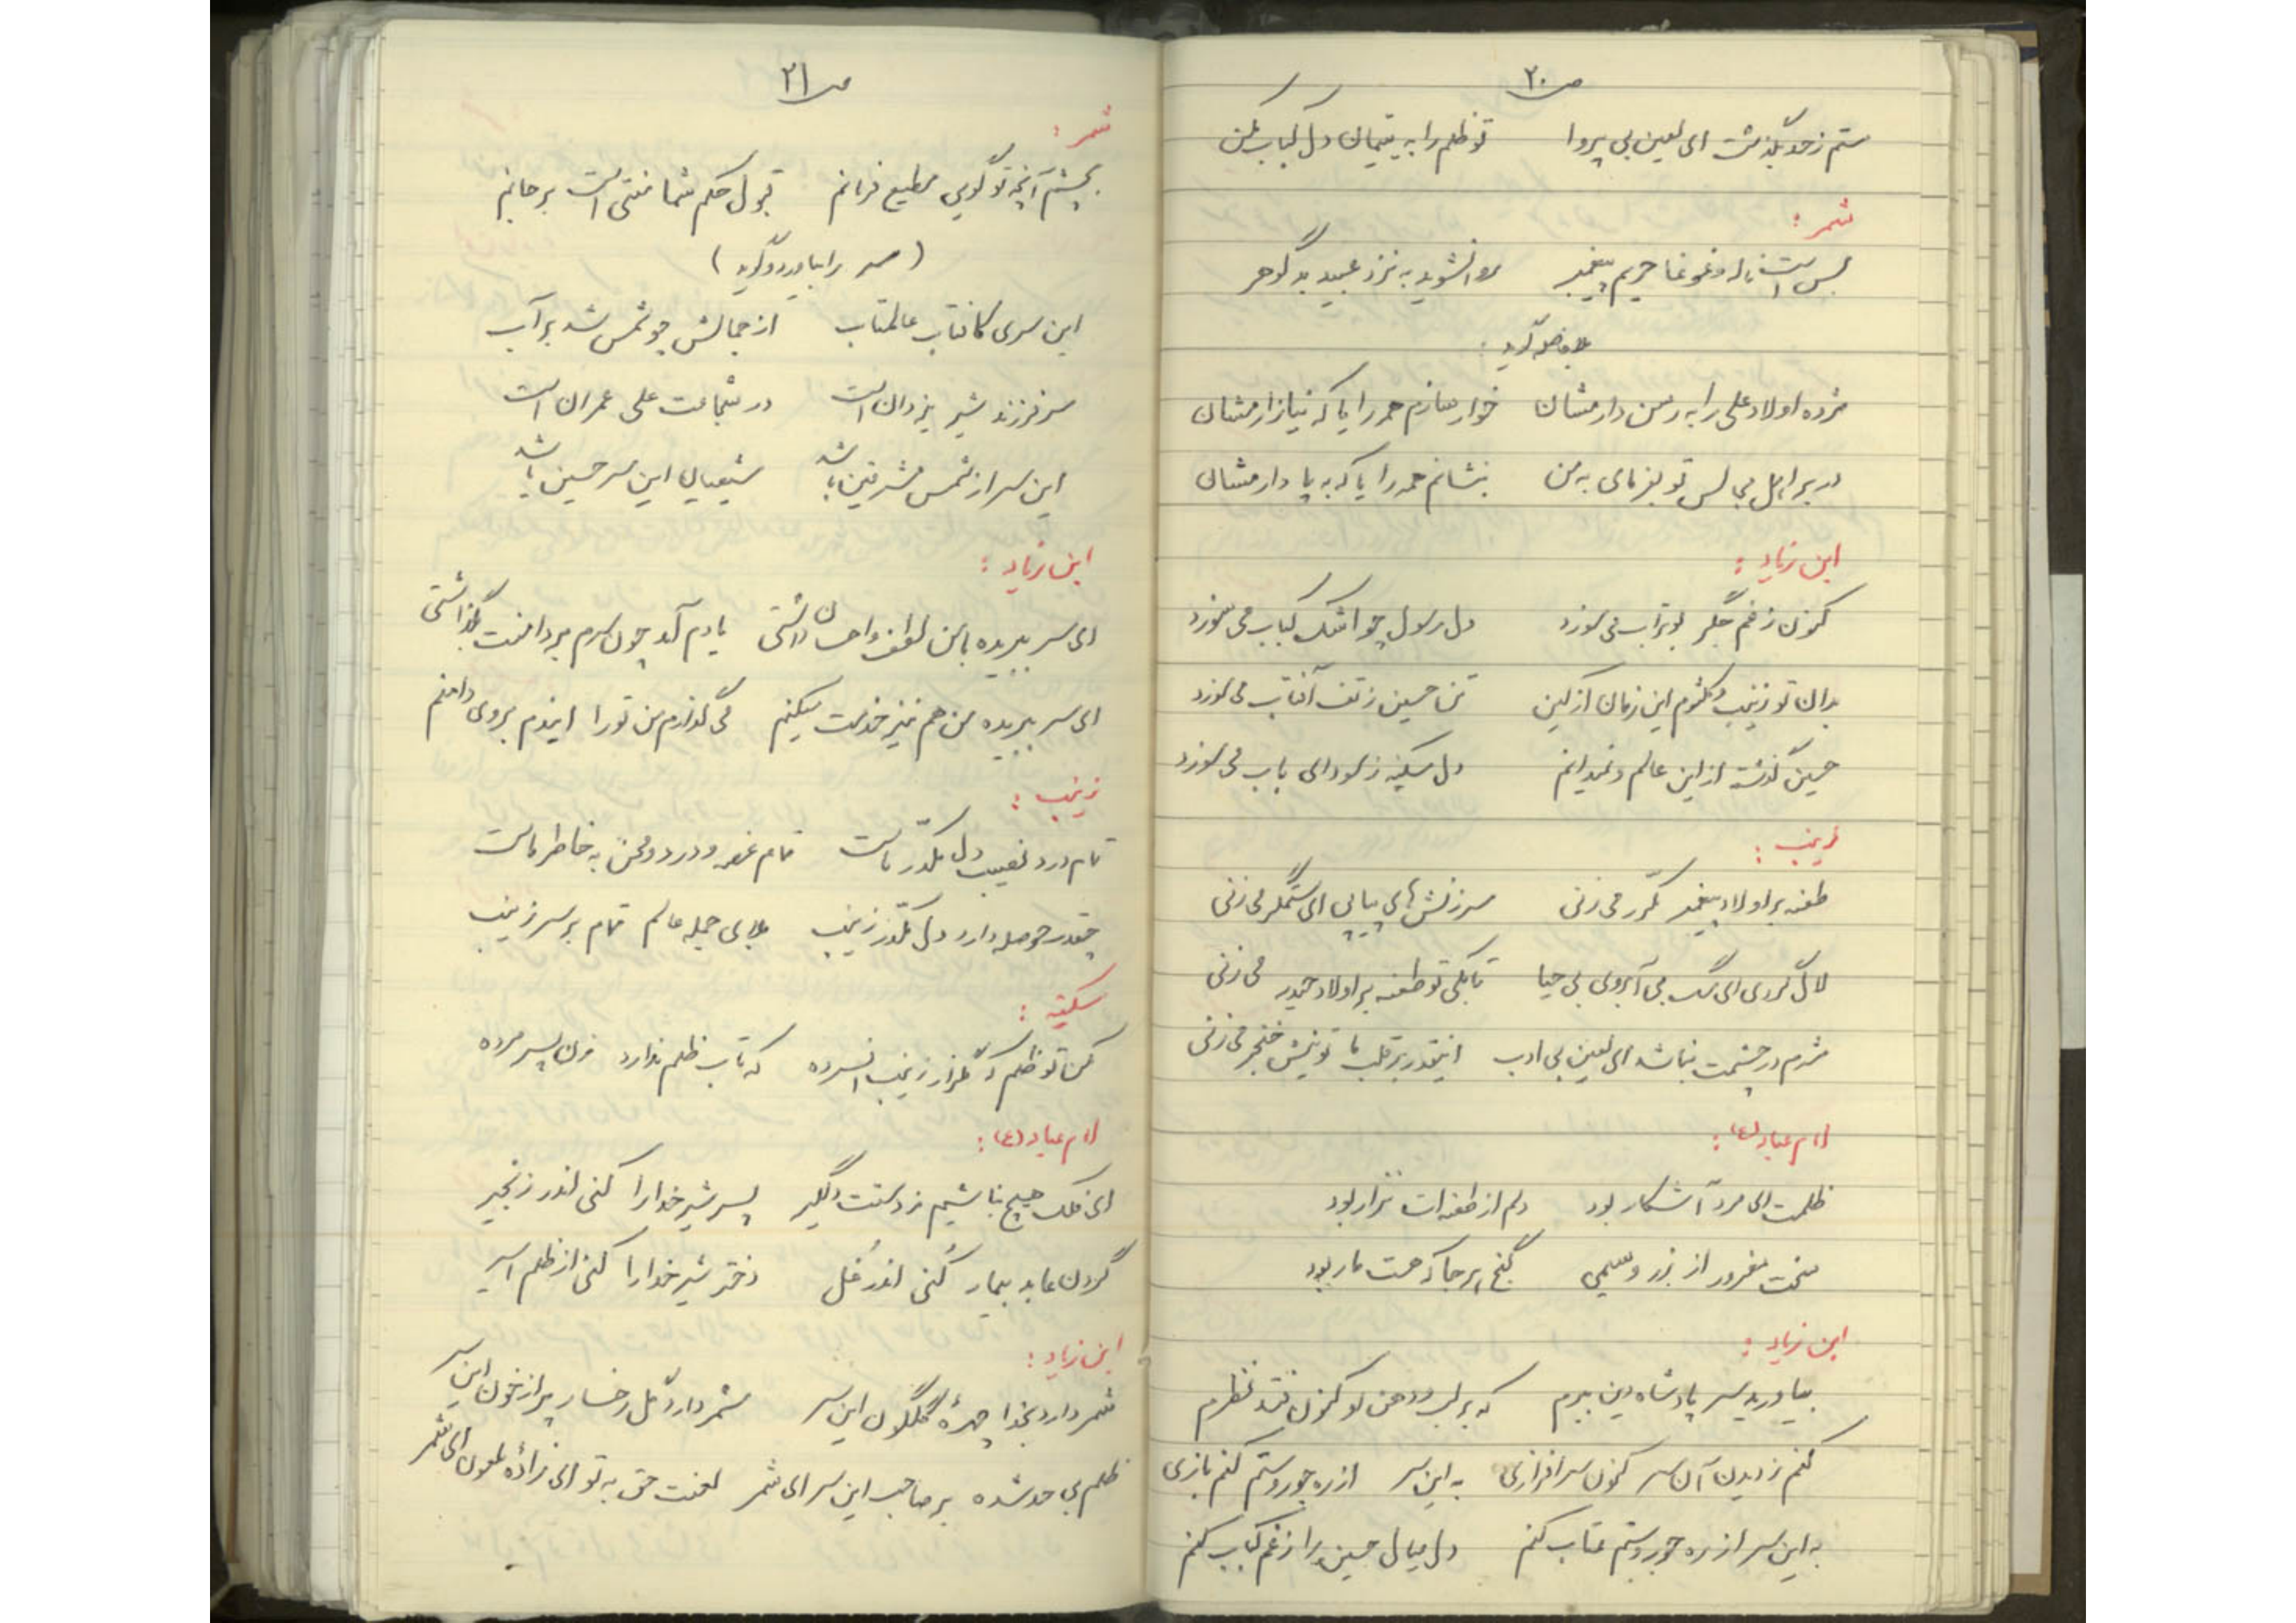 ص ۲۰
ستم ز حد بگذشت ای لعین بی پروا تو ظلم را به یتیمان دل کباب مکن
شمر :
بس است ناله و غوغا حریم پیغمبر روانشوید به نزد عبید بد گوهر
بلافاصله گوید :
مژده اولاد علی را به رسن دارمشان خوار سازم همه را یا که نیازارمشان
در بر اهل مجالس تو بفرمای به من بنشانم همه را یا که به پا دارمشان
ابن زیاد :
کنون ز غم جگر بوتراب می سوزد دل رسول چو اشک کباب می سوزد
بدان تو زینب و کلثوم این زمان از کین تن حسین ز تف آفتاب می سوزد
حسین گذشته از این عالم و نمیدانم دل سکینه ز سودای باب می سوزد
زینب :
طعنه بر اولاد پیغمبر مکرر می زنی سرزنش های پیاپی ای ستمگر می زنی
لال گردی ای سگ بی آبروی بی حیا تا بکی تو طعنه بر اولاد حیدر می زنی
شرم در چشمت نباشد ای لعین بی ادب اینقدر بر قلب ما تو نیش خنجر می زنی
امام عباد (ع) :
ظلمت ای مرد آشکار بود دلم از طعنه ات نزار بود
سخت مغرور از زر و سیمی گنج هر جا که هست مار بود
ابن زیاد :
بیاورید سر پادشاه دین ببرم که بر لب و دهن او کنون فتد نظرم
کنم ز دیدن آن سر کنون سرافرازی به این سر از ره جور و ستم کنم بازی
به این سر از ره جور و ستم عتاب کنم دل عیال حسین را ز غم کباب کنم
ص ۲۱
شمر :
بچشم آنچه تو گویی مطیع فرمانم قبول حکم شما منتی است بر جانم
( سر را بیاورد و گوید )
این سری کافتاب عالمتاب از جمالش چو شمس شد بر آب
سر فرزند شیر یزدان است در شجاعت علی عمران است
این سر از شمس مشرقین باشد شیعیان این سر حسین باشد
ابن زیاد :
ای سر ببریده با من لطف و احسان داشتی یادم آمد چون سرم بر دامنت بگذاشتی
ای سر ببریده من هم نیز خدمت میکنم می گذارم من تو را ایندم بروی دامنم
زینب :
تمام درد نصیب دل مکدر ماست تمام غصه و درد و محن به خاطر ماست
چقدر حوصله دارد دل مکدر زینب بلای جمله عالم تمام بر سر زینب
سکینه :
مکن تو ظلم دگر بزار زینب افسرده که تاب ظلم ندارد زن پسر مرده
امام عباد (ع) :
ای فلک هیچ نباشیم ز دستت دلگیر پسر شیر خدا را کنی اندر زنجیر
گردن عابد بیمار کُنی اندر غُل دختر شیر خدا را کنی از ظلم اسیر
ابن زیاد :
شمر دارد بخدا چهرهٔ گلگون این سر شمر دارد گل رخسار پر از خون این سر
ظلم بی حد شده بر صاحب این سر ای شمر لعنت حق به تو ای زادهٔ ملعون ای شمر